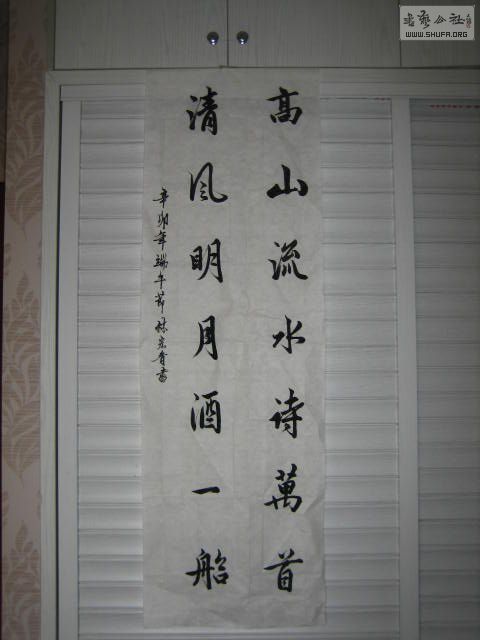 高山流水诗萬首
清风明月酒一船
辛卯年端午节林宏奮書
書藝公社
WWW.SHUFA.ORG